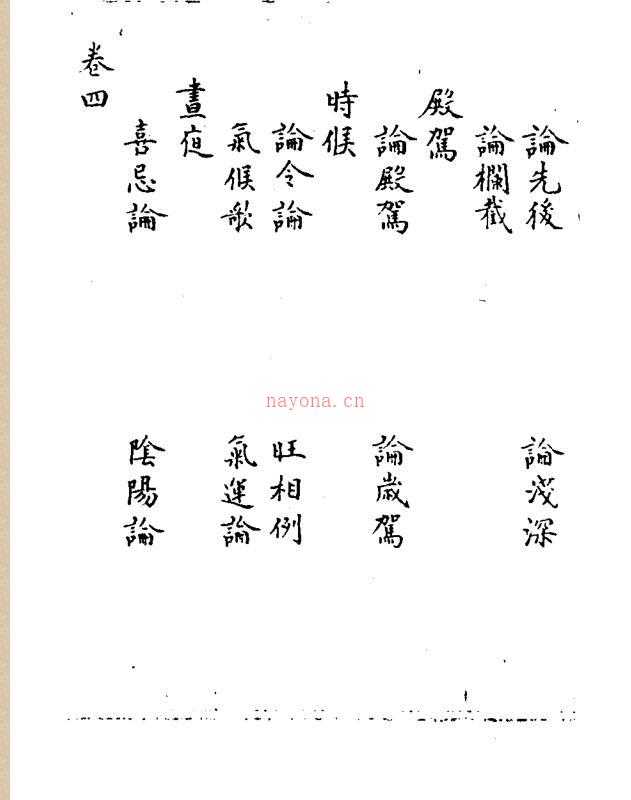 論先後
論淺深
論欄截
殿駕
論殿駕
論歲駕
時候
論令論
旺相例
氣候歌
氣運論
晝夜
喜忌論
陰陽論
卷四
nayona.cn